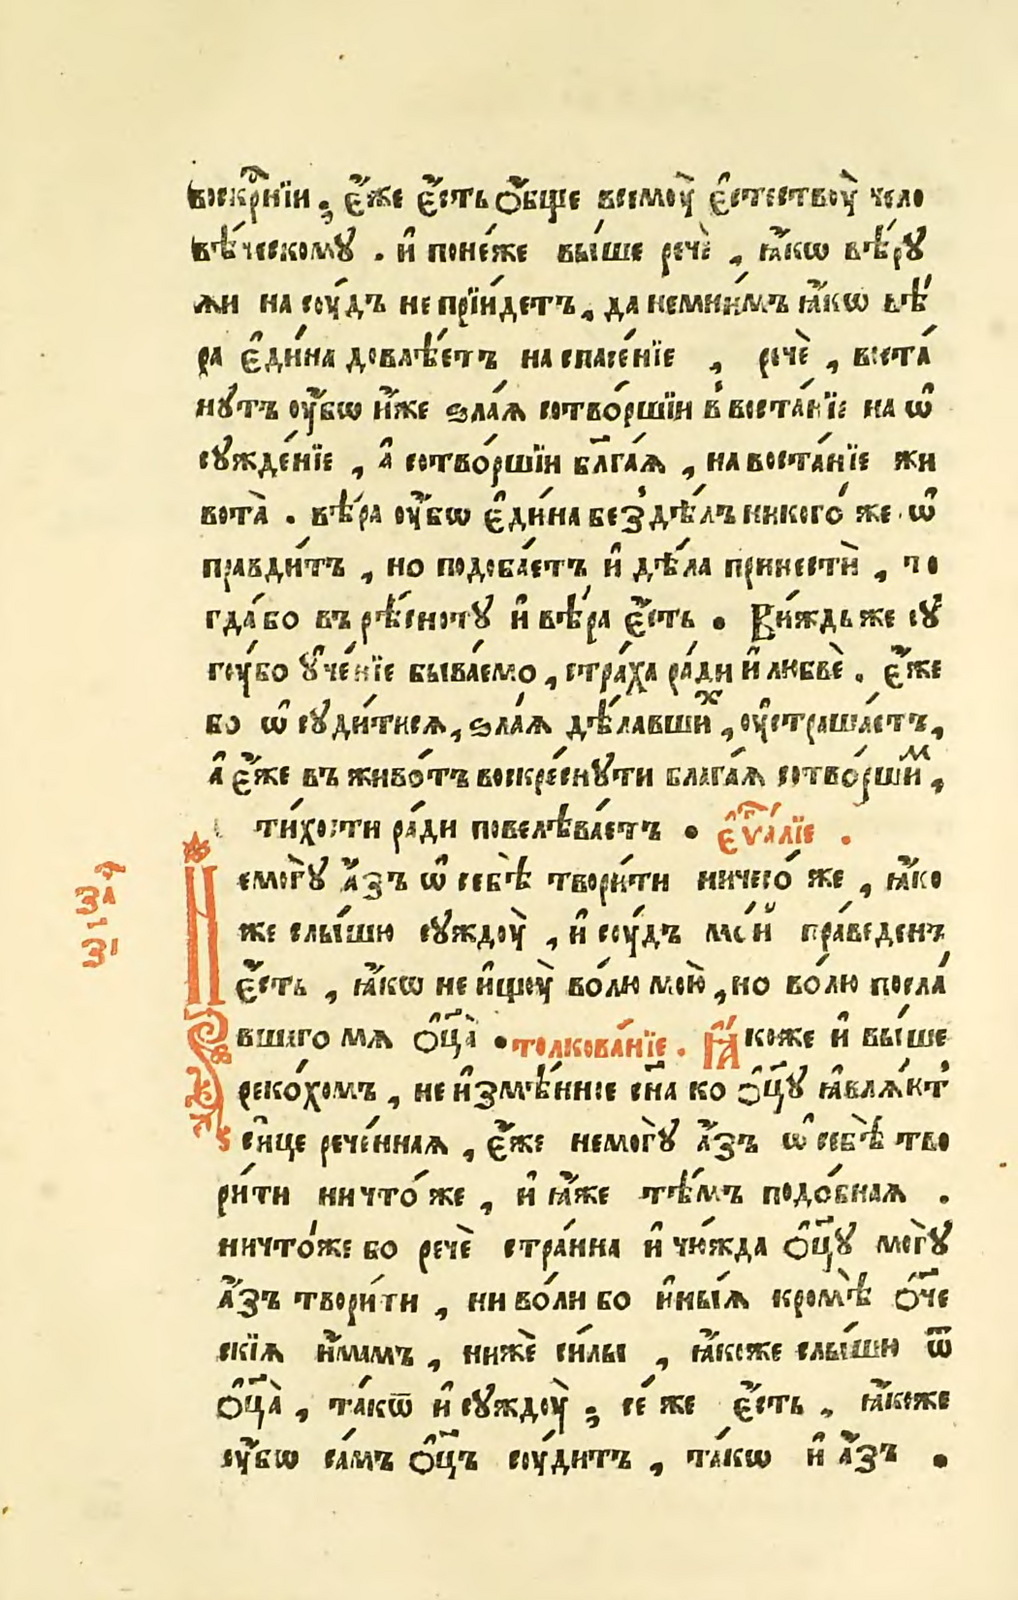 воскр҃нїи, є҆́же є҆́сть ѻ҆́бще всемꙋ̀ є҆стествꙋ̀ чело
вѣ́ческомꙋ . и҆ поне́же вы́ше речѐ , ꙗ҆́кѡ вѣ́рꙋ
ѧи на сꙋ́дъ не прїи́детъ, да немни́мъ ꙗ҆́кѡ вѣ́
ра є҆ди́на довлѣ́етъ на спасе́нїе , речѐ , воста́
нꙋтъ ᲂу҆́бѡ и҆̀же ѕла́ѧ сотво́ршїи в воста́нїе на ѡ҆
сꙋжде́нїе , а҆ сотво́ршїи бл҃га́ѧ , на воста́нїе жи
вота̀ . вѣ́ра ᲂу҆́бѡ є҆ди́на без дѣ́лъ никого́ же ѡ҆
правди́тъ , но подоба́етъ и҆ дѣ́ла принестѝ , то
гда́ бо въ рѣ́снотꙋ и҆ вѣ́ра є҆́сть . Ви́ждь же сꙋ
гꙋ́бо ᲂу҆че́нїе быва́емо , стра́ха ра́ди и҆ любвѐ . є҆́же
бо ѡ҆ сꙋди́тисѧ , ѕла́ѧ дѣ́лавшиⷯ , ᲂу҆страша́етъ ,
а҆ є҆́же въ живо́тъ воскре́снꙋти блага́ѧ сотво́ршиⷨ ,
ти́хости ра́ди повелѣва́етъ . є҆ѵⷢ҇а́лїе .
Немогꙋ̀ а҆́зъ ѡ҆ себѣ̀ твори́ти ничесо́ же , ꙗ҆́ко
же слы́шю сꙋждꙋ̀ , и҆ сꙋ́дъ мо́й пра́веденъ
є҆́сть , ꙗ҆́кѡ не и҆щꙋ̀ во́лю мою̀ , но во́лю посла́
вшаго мѧ ѻ҆ц҃а̀ . толкова́нїе . Ꙗ҆́коже и҆ вы́ше
реко́хомъ , не и҆змѣ́нние сн҃а ко ѻ҆ц҃ꙋ ꙗ҆влѧ́ют
си́це рече́ннаѧ , є҆́же немогꙋ̀ а҆́зъ ѡ҆ себѣ̀ тво
ри́ти ничто́ же , и҆ ꙗ҆́же тѣ́мъ подо́бнаѧ .
ничто́же бо речѐ стра́нна и҆ чю́жда ѻ҆ц҃ꙋ̀ могꙋ̀
а҆́зъ твори́ти , ни во́ли бо и҆ны́ѧ кромѣ̀ ѻ҆ч҃е
скїѧ и҆́мамъ , нижѐ си́лы , ꙗ҆́коже слы́шю ѿ
ѻ҆ц҃а̀ , та́кѿ и҆ сꙋждꙋ̀ ; се́ же є҆́сть , ꙗ҆́коже
ᲂу҆́бѡ са́мъ ѻ҆ц҃ъ сꙋ́дитъ , та́кѡ и҆ а҆́зъ .
заⷱ҇
з҃і